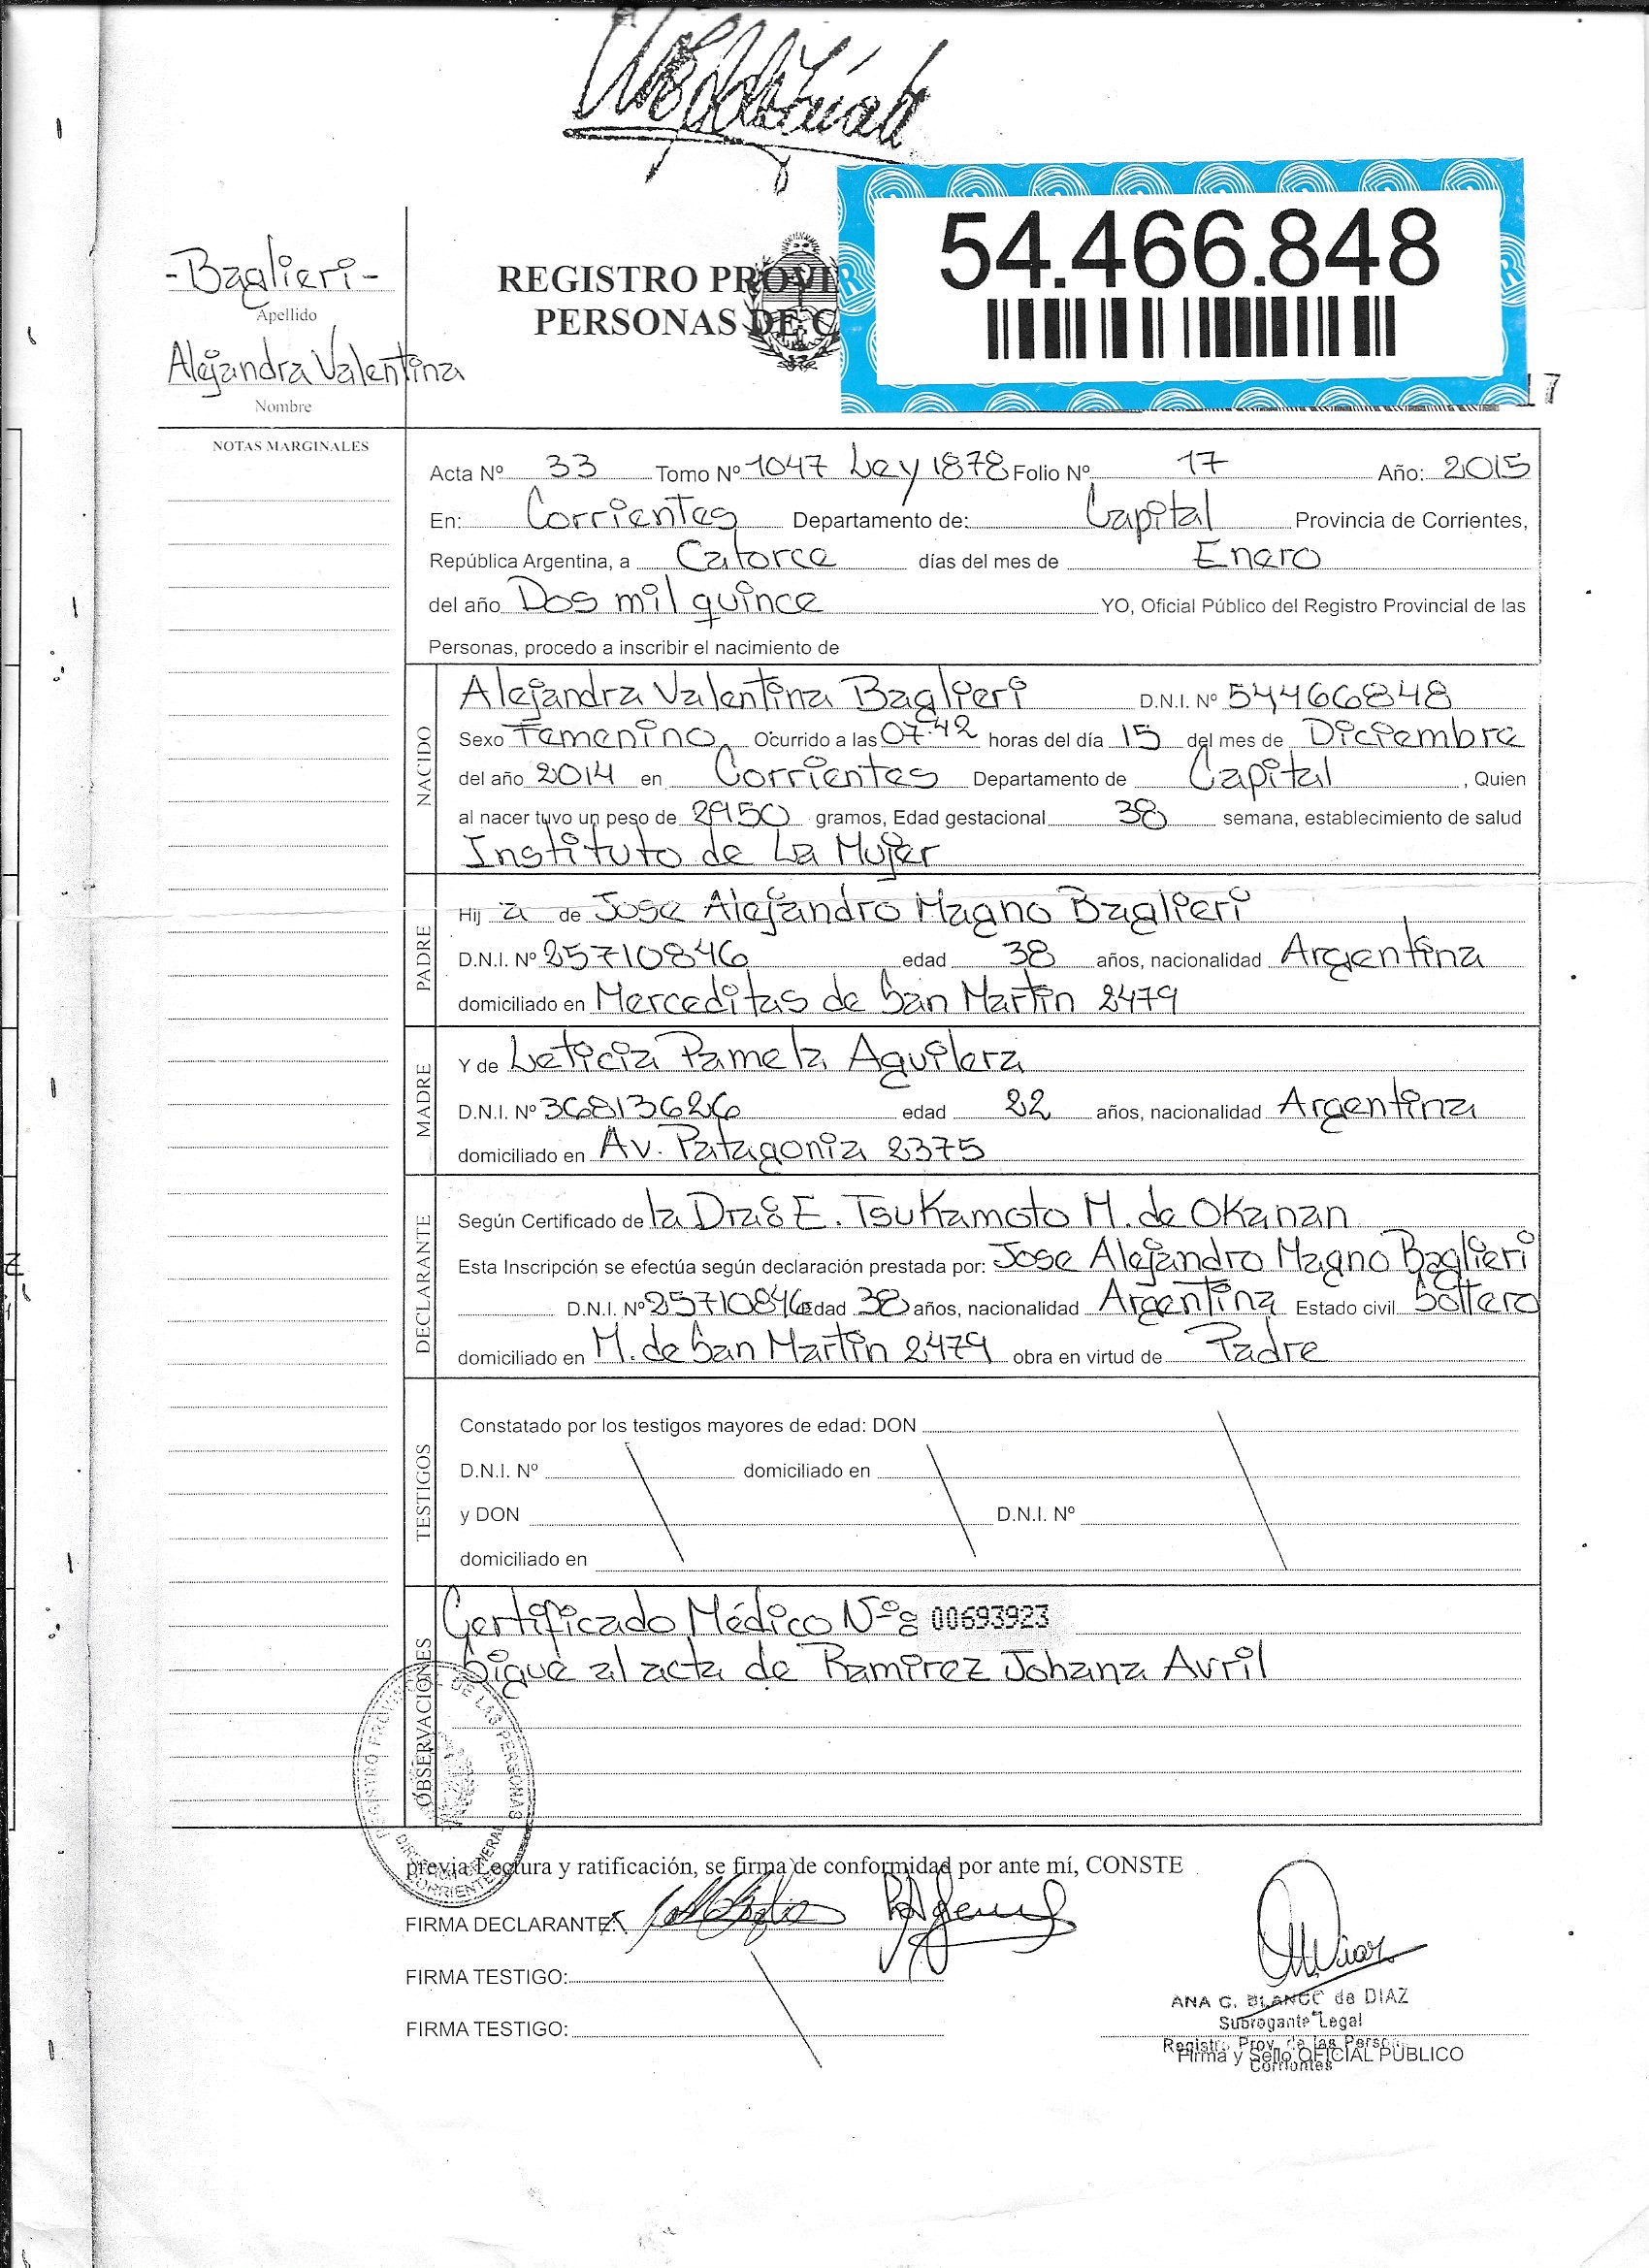 54.466.848
- Baglieri -
Apellido
REGISTRO PROVI
PERSONAS DE C
Alejandra Valentina
Nombre
17
NOTAS MARGINALES
Acta Nº 33 Tomo Nº 1047 Ley 1878 Folio Nº 17 Año: 2015
En: Corrientes Departamento de: Capital Provincia de Corrientes,
República Argentina, a Catorce días del mes de Enero
del año Dos mil quince YO, Oficial Público del Registro Provincial de las
Personas, procedo a inscribir el nacimiento de
NACIDO
Alejandra Valentina Baglieri D.N.I. Nº 54466848
Sexo Femenino Ocurrido a las 07:42 horas del día 15 del mes de Diciembre
del año 2014 en Corrientes Departamento de Capital, Quien
al nacer tuvo un peso de 2950 gramos, Edad gestacional 38 semana, establecimiento de salud
Instituto de La Mujer
PADRE
Hij a de Jose Alejandro Magno Baglieri
D.N.I. Nº 25710846 edad 38 años, nacionalidad Argentina
domiciliado en Merceditas de San Martin 2479
MADRE
Y de Leticia Pamela Aguilera
D.N.I. Nº 36813626 edad 22 años, nacionalidad Argentina
domiciliado en Av. Patagonia 2375
DECLARANTE
Según Certificado de la Dra: E. Tsukamoto M. de Okanan
Esta Inscripción se efectúa según declaración prestada por: Jose Alejandro Magno Baglieri
D.N.I. Nº 25710846 edad 38 años, nacionalidad Argentina Estado civil Soltero
domiciliado en M. de San Martin 2479 obra en virtud de Padre
TESTIGOS
Constatado por los testigos mayores de edad: DON
D.N.I. Nº domiciliado en
y DON D.N.I. Nº
domiciliado en
OBSERVACIONES
Certificado Médico Nº: 00693923
Sigue al acta de Ramirez Johana Avril
REGISTRO PROVIN DE LAS PERSONAS
DIRECCION GENERAL
CORRIENTES
previa Lectura y ratificación, se firma de conformidad por ante mí, CONSTE
FIRMA DECLARANTE:
FIRMA TESTIGO:
FIRMA TESTIGO:
ANA C. BLANCO de DIAZ
Subrogante Legal
Registro Prov. de las Person
Corrientes
Firma y Sello OFICIAL PÚBLICO